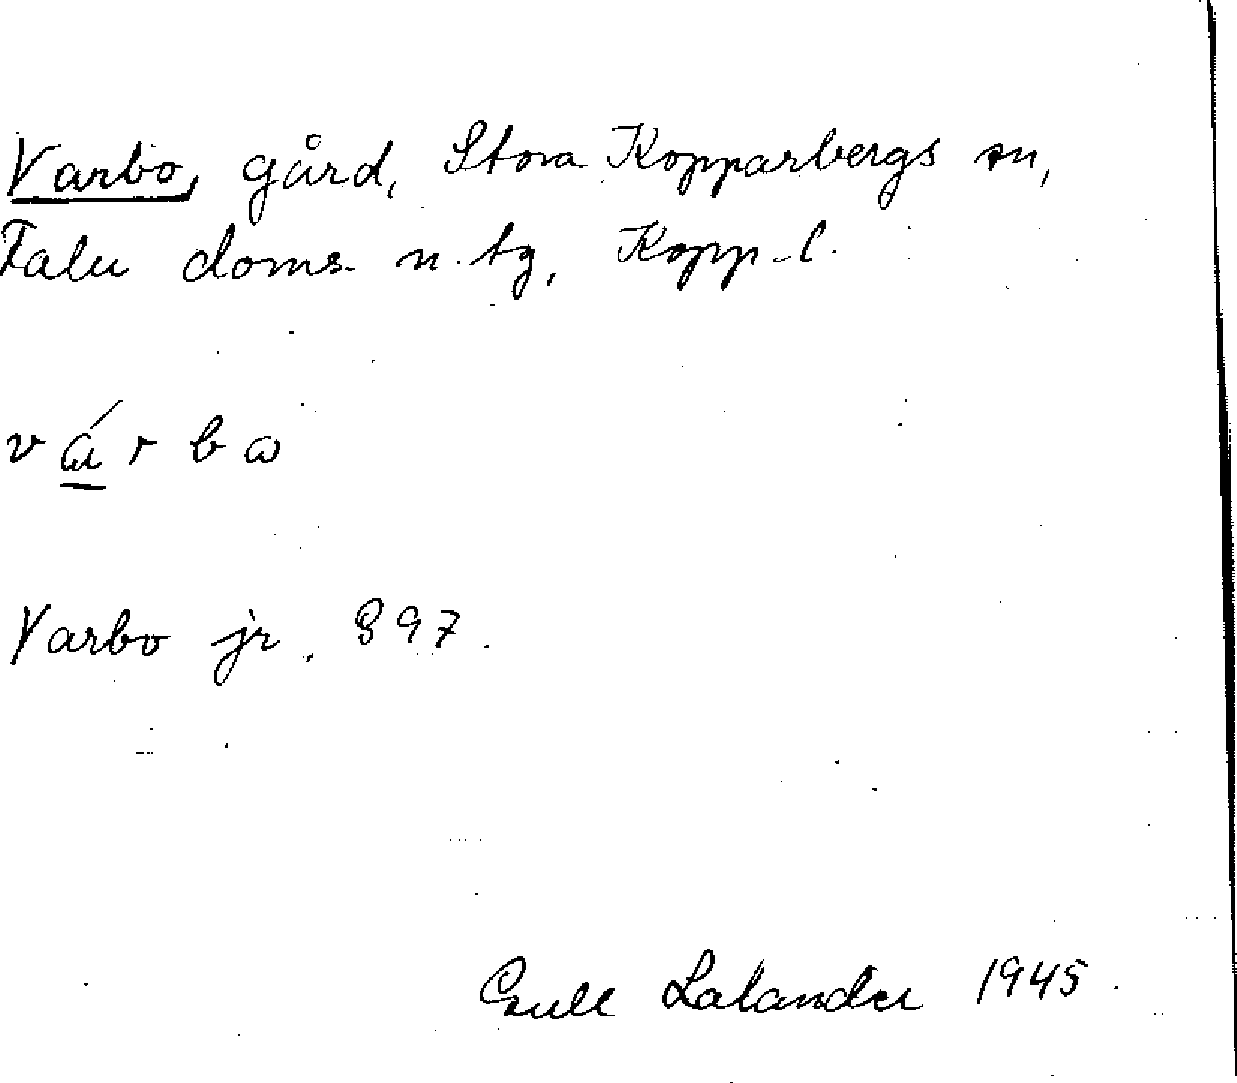 Varbo, gård, Stora Kopparbergs sn,
Falu doms. n. tg, Kopp-l.
várbω
Varbo jr. 897.
Gull Lalander 1945.